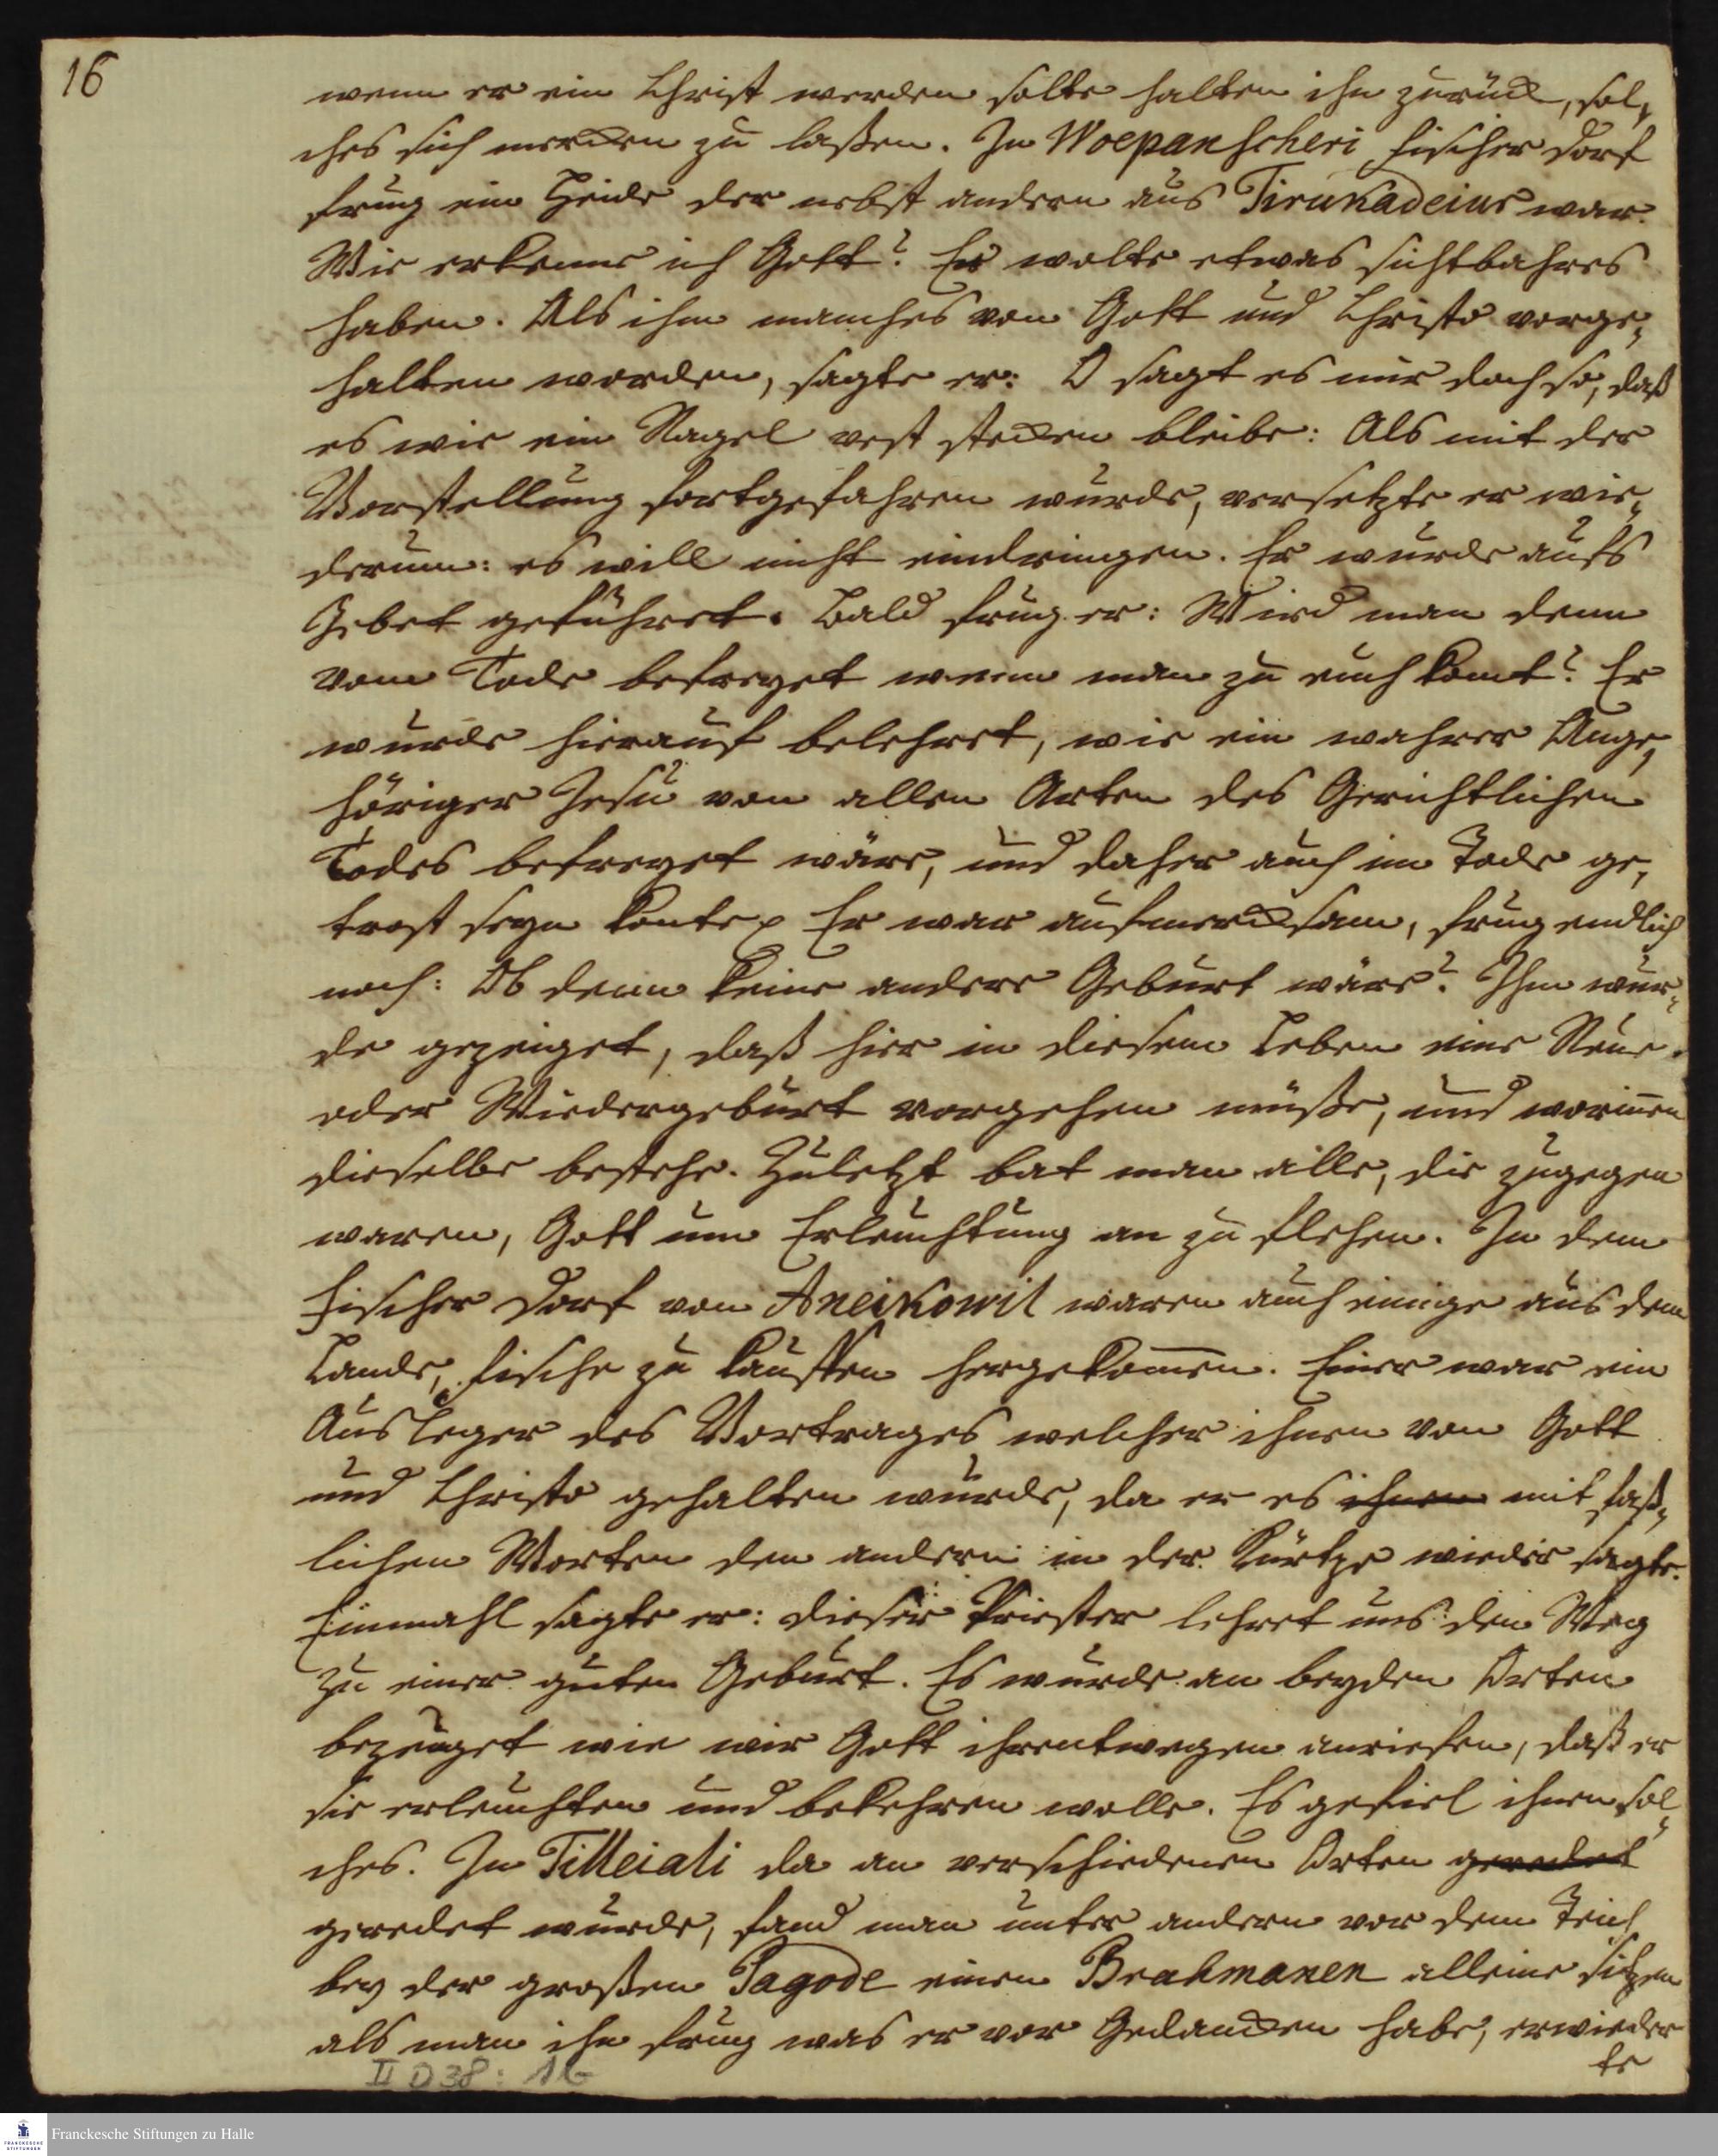 16
wenn er ein Christ werden solte halten ihn zurück, sol¬
ches sich mercken zu laßen. In Woepanscheri Fischer Dorf
frug ein Heide der nebst andern aus Tirukadeiur war.
Wie erkenne ich Gott? Er wolte etwas sichtbahres
haben. Als ihm manches von Gott und Christo vorge¬
halten worden, sagte er: O sagt es mir doch so, daß
es wie ein Nagel vest stecken bleibe: Als mit der
Vorstellung fortgefahren wurde, versetzte er wie¬
derum: es will nicht eindringen. Er wurde aufs
Gebet geführet. Bald frug er: Wird man denn
vom Tode befreyet wenn man zu euch komt? Er
wurde hierauf belehret, wie ein wahrer Ange¬
höriger Jesu von allen Arten des Gerichtlichen
Todes befreyet wäre, und daher auch im Tode ge¬
trost seyn konte. Er war aufmercksam, frug endlich
noch: Ob denn keine andere Geburt wäre? Ihm wur¬
de gezeiget, daß hier in diesem Leben eine Neue-
oder Wiedergeburt vorgehen müße, und worinnen
dieselbe bestehe. Zuletzt bat man alle, die zugegen
waren, Gott um Erleuchtung an zu flehen. In dem
Fischer Dorf von Aneikowil waren auch einige aus dem
Lande, Fische zu kauffen hergekommen. Einer war ein
Ausleger des Vortrages welcher ihnen von Gott
und Christo gehalten wurde, da er es ihnen mit faß¬
lichen Worten den andern in der Kürtze wieder sagte.
Einmahl sagte er: dieser Priester lehret uns den Weg
zu einer guten Geburt. Es wurde an beyden Orten
bezeuget wie wir Gott ihrentwegen anriefen, daß er
sie erleuchten und bekehren wolle. Es gefiel ihnen sol¬
ches. In Tilleiali da an verschiedenen Orten geredet
geredet wurde, fand man unter andern vor dem Teich
bey der großen Pagode einen Brahmanen alleine sitzen
als man ihn frug was er vor Gedancken habe, erwieder
te
II D 38: 16
Franckesche Stiftungen zu Halle